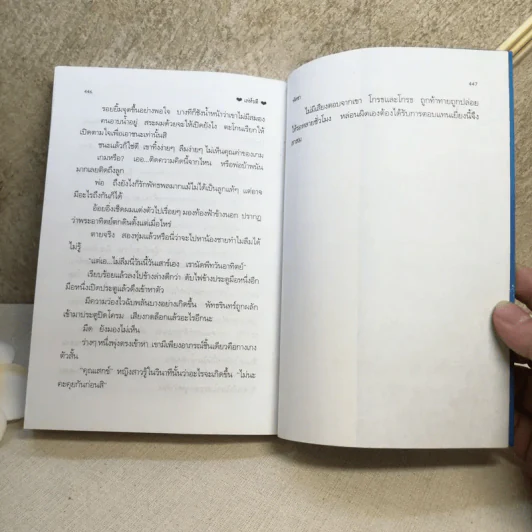 ๔๔๖
รอยยิ้มผุดขึ้นอย่างพอใจ บางทีก็ชั่งน้ำหน้าว่าเขาไม่มีสมอง
คนอาบน้ำอยู่ สระผมด้วยจะให้เปิดยังไง ตะโกนเรียกให้
เปิดตามใจเพื่อเอาชนะเท่านั้นสิ
ชนะแล้วก็ใช่ดี เขาทิ้งง่ายๆ ลืมง่ายๆ ไม่เห็นคุณค่าของเกม
เกมหรือ? เออ...ติดความคิดนี้จากไหน หรือพ่อบ้าพนัน
มากเลยติดถึงลูก
พ่อ ถึงยังไงก็รักพัทธพลมากแม้ไม่ได้เป็นลูกแท้ๆ แต่อาจ
มีอะไรถึงกันก็ได้
อ้อยอิ่งเช็ดผมแต่งตัวไปเรื่อยๆ มองท้องฟ้าข้างนอก ปรากฏ
ว่าพระอาทิตย์ตกดินตั้งแต่เมื่อไหร่
ตายจริง สองทุ่มแล้วหรือนี่ว่าจะไปหาน้องชายทำไมลืมได้
ไม่รู้
"แต่เอ...ไม่ลืมนี่วันนี้วันเสาร์เอง เรานัดพีทวันอาทิตย์"
เรียบร้อยแล้วลงไปข้างล่างดีกว่า ดับไฟข้างประตูมือหนึ่งอีก
มือหนึ่งเปิดประตูแล้วดึงเข้าหาตัว
มีความว่องไวฉับพลันบางอย่างเกิดขึ้น พัทธรินทร์ถูกผลัก
เข้ามาประตูปิดโครม เสียงกดล็อกแล้วอะไรอีกนะ
มืด ยังมองไม่เห็น
ร่างๆ หนึ่งพุ่งตรงเข้าหา เขามีเพียงอาภรณ์ชิ้นเดียวคือกางเกง
ตัวสั้น
"คุณเสกข์" หญิงสาวรู้ในวินาทีนั้นว่าอะไรจะเกิดขึ้น "ไม่นะ
คะคุยกันก่อนสิ"
๔๔๗
ไม่มีเสียงตอบจากเขา โกรธและโกรธ ถูกท้าทายถูกปล่อย
ให้รอหลายชั่วโมง หล่อนผิดเองต้องได้รับการตอบแทนเยี่ยงนี้จึง